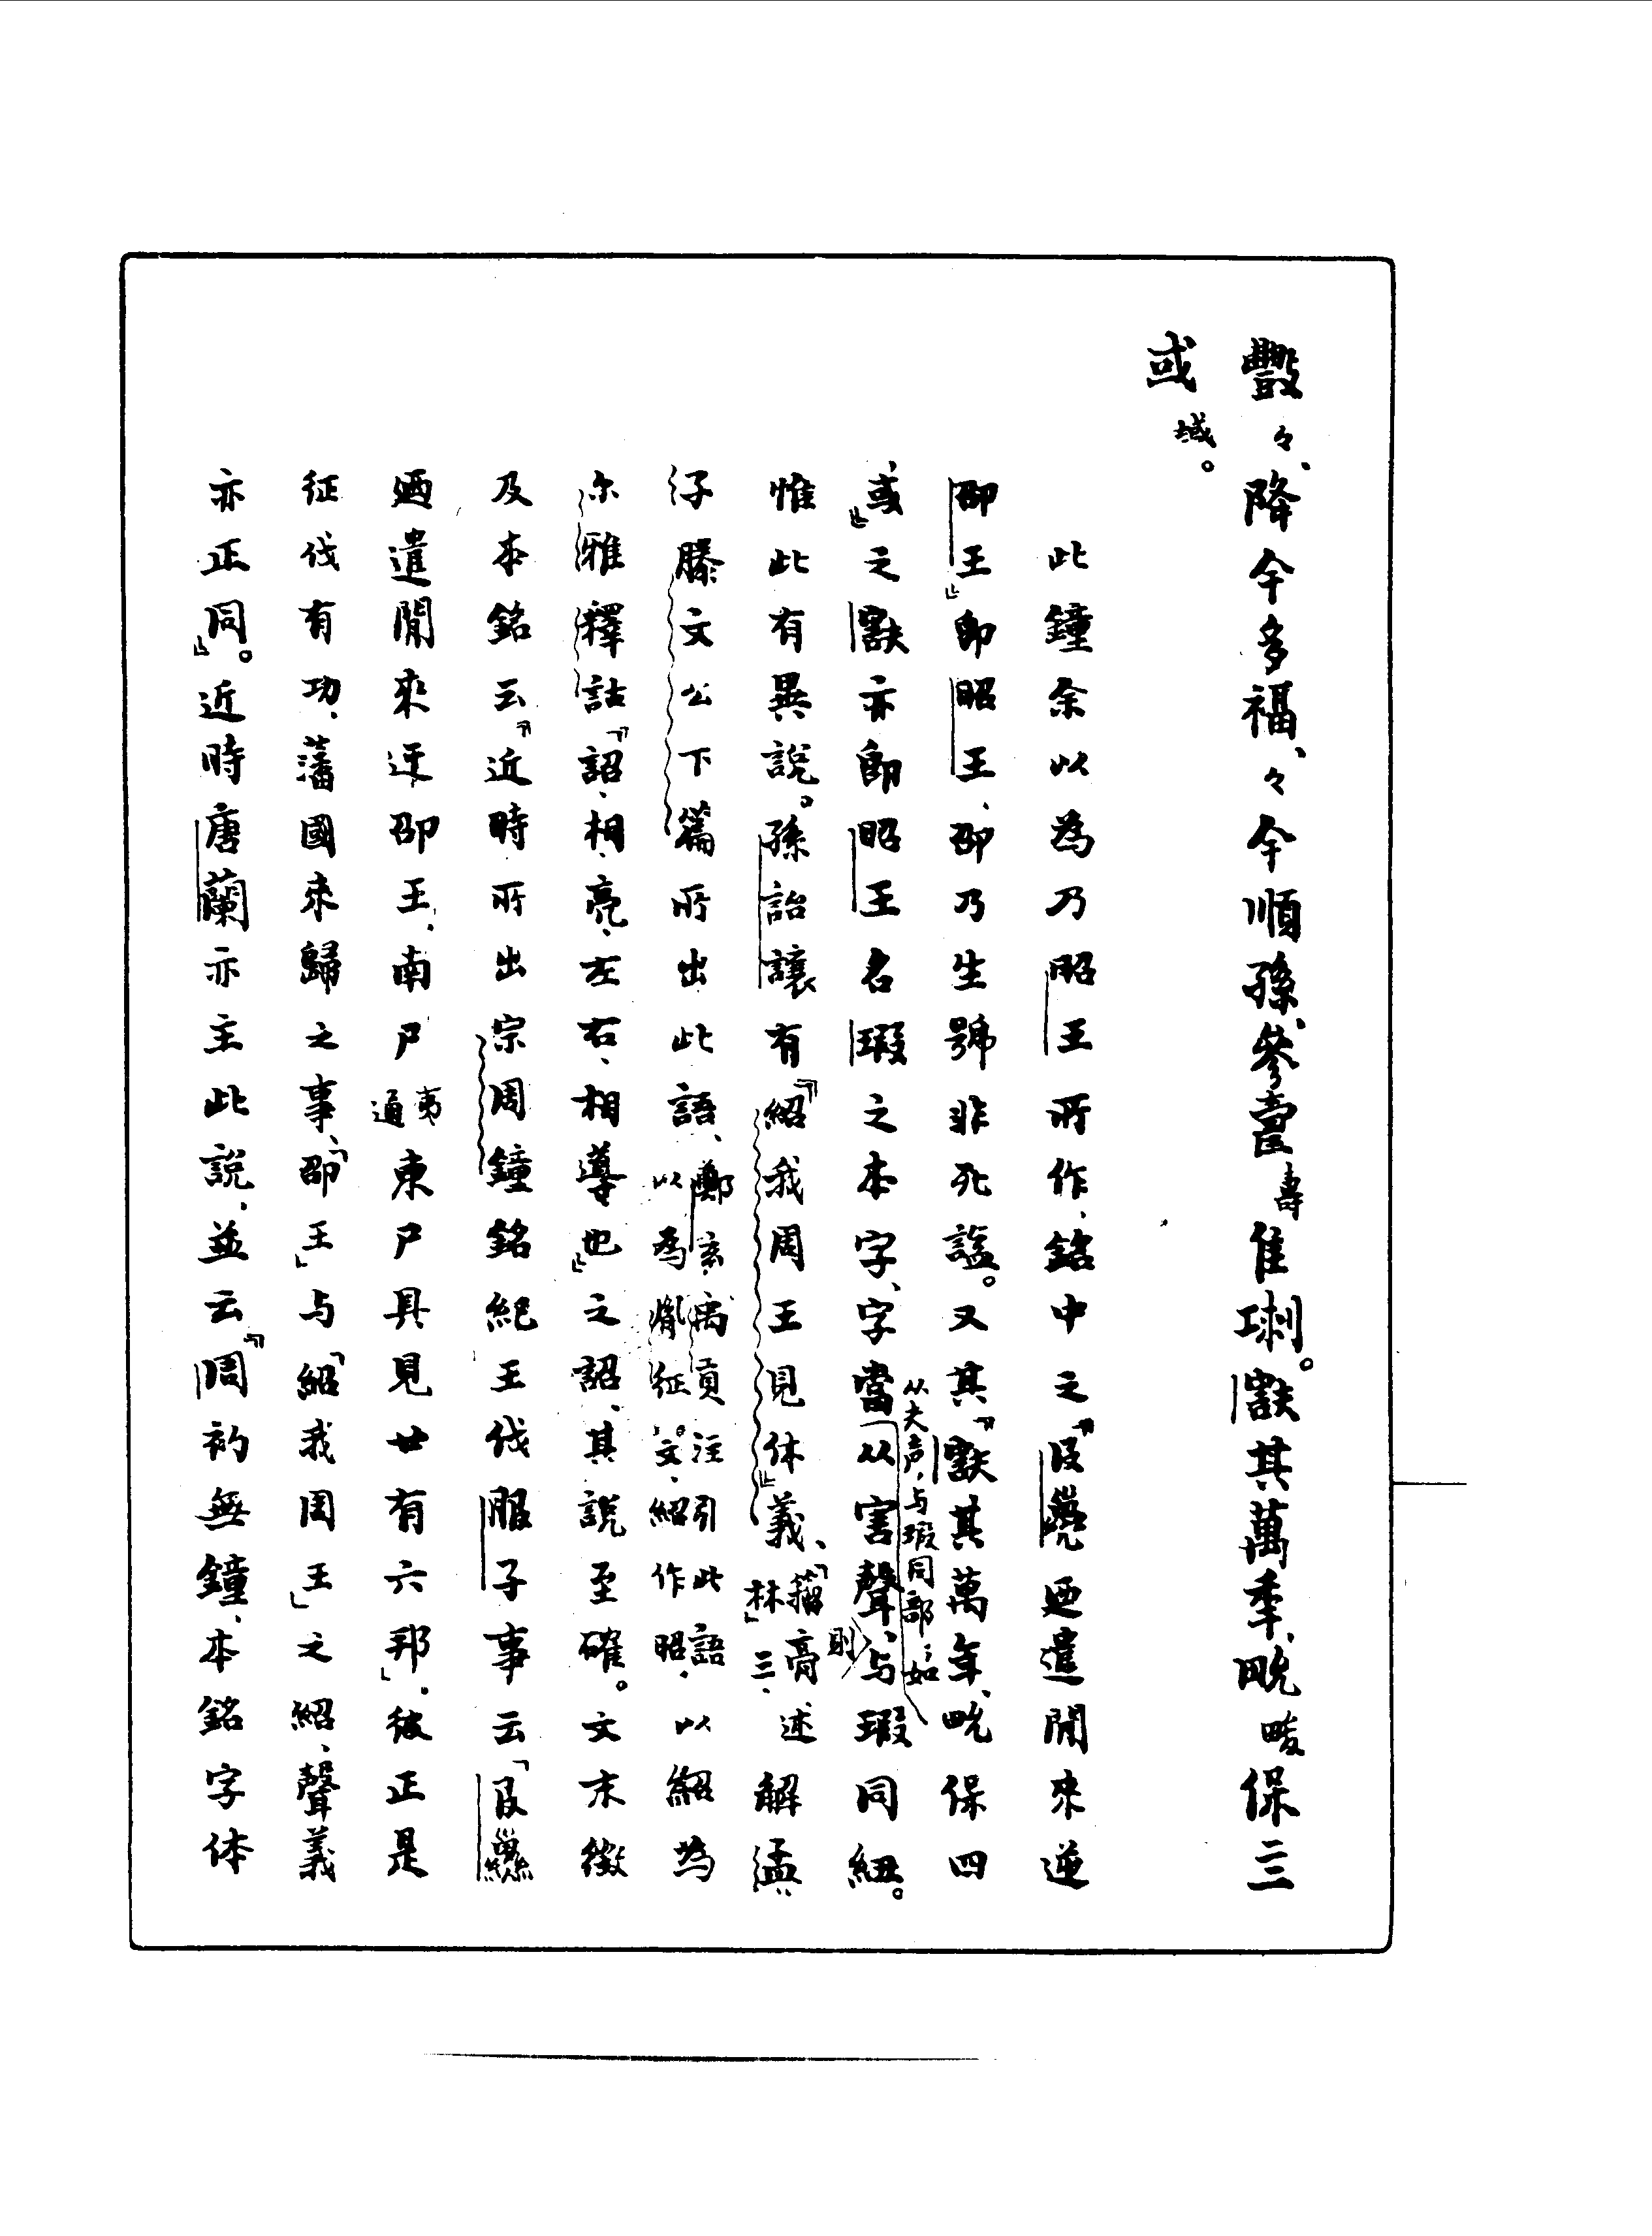 豐々、降余多福、々余順孫、參壽隹琍。㝬其萬年、畯保三
或域。
此鐘余以為乃昭王所作、銘中之『𠬝孶迺遣閒來逆
卲王』即昭王、卲乃生號非死謚。又其『㝬其萬年、畯保四
或』之㝬亦即昭王名瑕之本字、字當从害聲、与瑕同紐。
从夫声、与瑕同部、如則
惟此有異說。孫詒讓有『紹我周王見休』義、「籀膏述林」三、述解孟
子滕文公下篇所出此語、鄭玄禹貢注引此語、以為胤征文。紹作昭、以紹為
尔雅釋詁『詔、相、亮、左右、相導也』之詔、其說至確。文末徵
及本銘云『近時所出宗周鐘銘紀王伐服子事云「𠬝
迺遣閒來逆卲王、南尸夷通東尸具見廿有六邦」、彼正是
征伐有功、藩國來歸之事、「卲王」与「紹我周王」之紹、聲義
亦正同』。近時唐蘭亦主此說、並云『周初無鐘、本銘字体